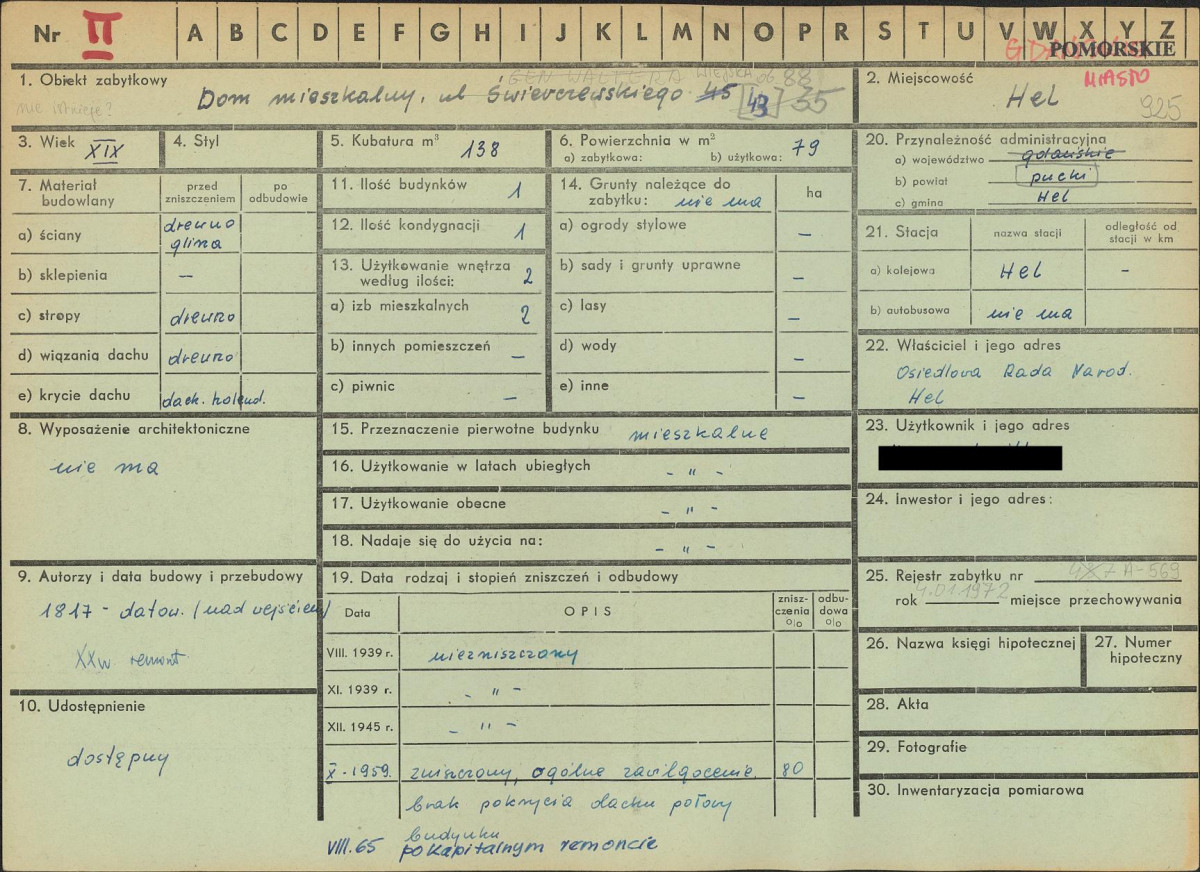 Nr II A B C D E F G H I J K L M N O P R S T U V W X Y Z
POMORSKIE
MIASTO
1. Obiekt zabytkowy
nie istnieje?
GEN WALTERA WIEJSKA ob. 88
Dom mieszkalny, ul Świerczewskiego 45 43 35
2. Miejscowość
Hel
925
3. Wiek XIX
4. Styl
5. Kubatura m³ 138
6. Powierzchnia w m²
a) zabytkowa: b) użytkowa: 79
20. Przynależność administracyjna
a) województwo gdańskie
b) powiat pucki
c) gmina Hel
7. Materiał budowlany
przed zniszczeniem
po odbudowie
a) ściany drewno glina
b) sklepienia –
c) stropy drewno
d) wiązania dachu drewno
e) krycie dachu dach. holend.
11. Ilość budynków 1
12. Ilość kondygnacji 1
13. Użytkowanie wnętrza
według ilości: 2
a) izb mieszkalnych 2
b) innych pomieszczeń –
c) piwnic –
14. Grunty należące do
zabytku: nie ma
ha
a) ogrody stylowe –
b) sady i grunty uprawne –
c) lasy –
d) wody –
e) inne –
21. Stacja
nazwa stacji
odległość od
stacji w km
a) kolejowa Hel –
b) autobusowa nie ma
22. Właściciel i jego adres
Osiedlowa Rada Narod.
Hel
8. Wyposażenie architektoniczne
nie ma
15. Przeznaczenie pierwotne budynku mieszkalne
16. Użytkowanie w latach ubiegłych – " –
17. Użytkowanie obecne – " –
18. Nadaje się do użycia na: – " –
23. Użytkownik i jego adres
24. Inwestor i jego adres:
9. Autorzy i data budowy i przebudowy
1817 – datow. (nad wejściem)
XXw remont
10. Udostępnienie
dostępny
19. Data rodzaj i stopień zniszczeń i odbudowy
Data
OPIS
znisz-
czenia
o|o
odbu-
dowa
o|o
VIII. 1939 r. niezniszczony
XI. 1939 r. – " –
XII. 1945 r. – " –
X - 1959. zniszczony, ogólne zawilgocenie. 80
brak pokrycia dachu połowy
budynku
VIII.65 po kapitalnym remoncie
25. Rejestr zabytku nr A-569
rok 4.01.1972 miejsce przechowywania
26. Nazwa księgi hipotecznej
27. Numer
hipoteczny
28. Akta
29. Fotografie
30. Inwentaryzacja pomiarowa